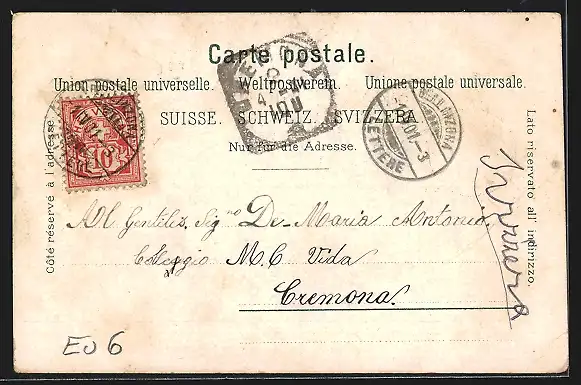 Carte postale.
Union postale universelle. Weltpostverein. Unione postale universale.
SUISSE. SCHWEIZ. SVIZZERA.
Nur für die Adresse.
Côté réservé à l'adresse.
Lato riservato all' indirizzo.
BELLINZONA
LETTERE
10
Al Gentilis. Sig.no De-Maria Antonio.
Collegio M. C Vida
Cremona.
Svizzera
EU 6